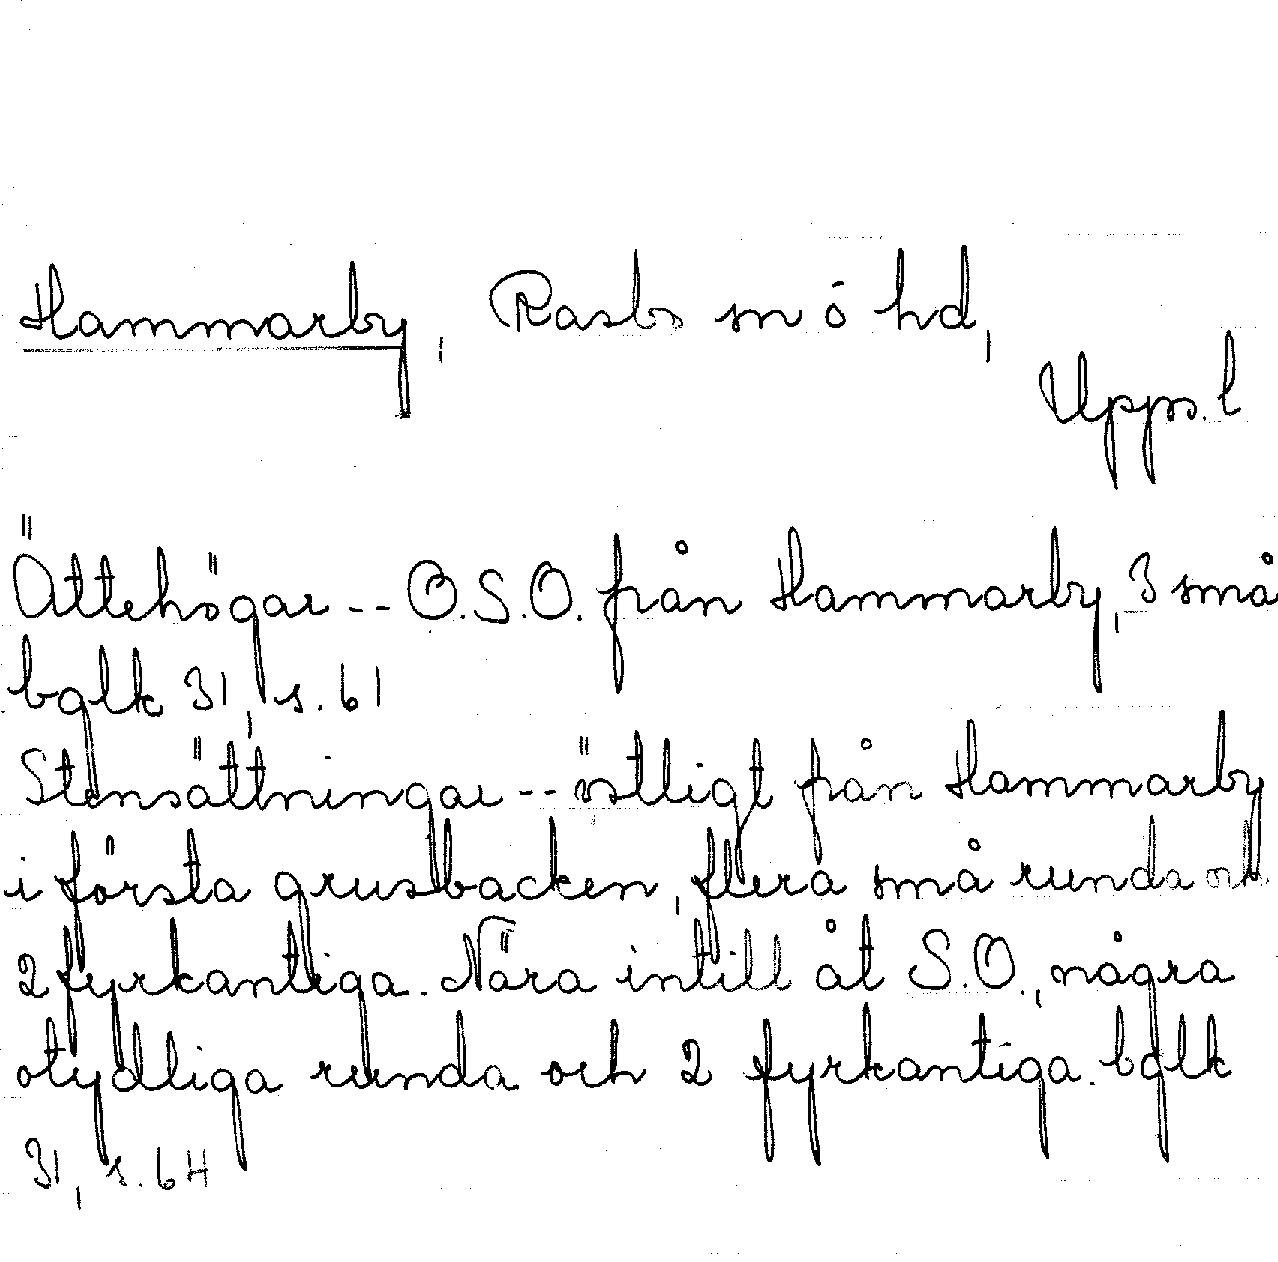 Hammarby, Rasbo sn ö hd,
Upps. l
Ättehögar -- O.S.O. från Hammarby, 3 små
bglk 31, s. 61
Stensättningar -- östligt från Hammarby
i första grusbacken, flera små runda och
2 fyrkantiga. Nära intill åt S.O., några
otydliga runda och 2 fyrkantiga. bglk
31, s. 64